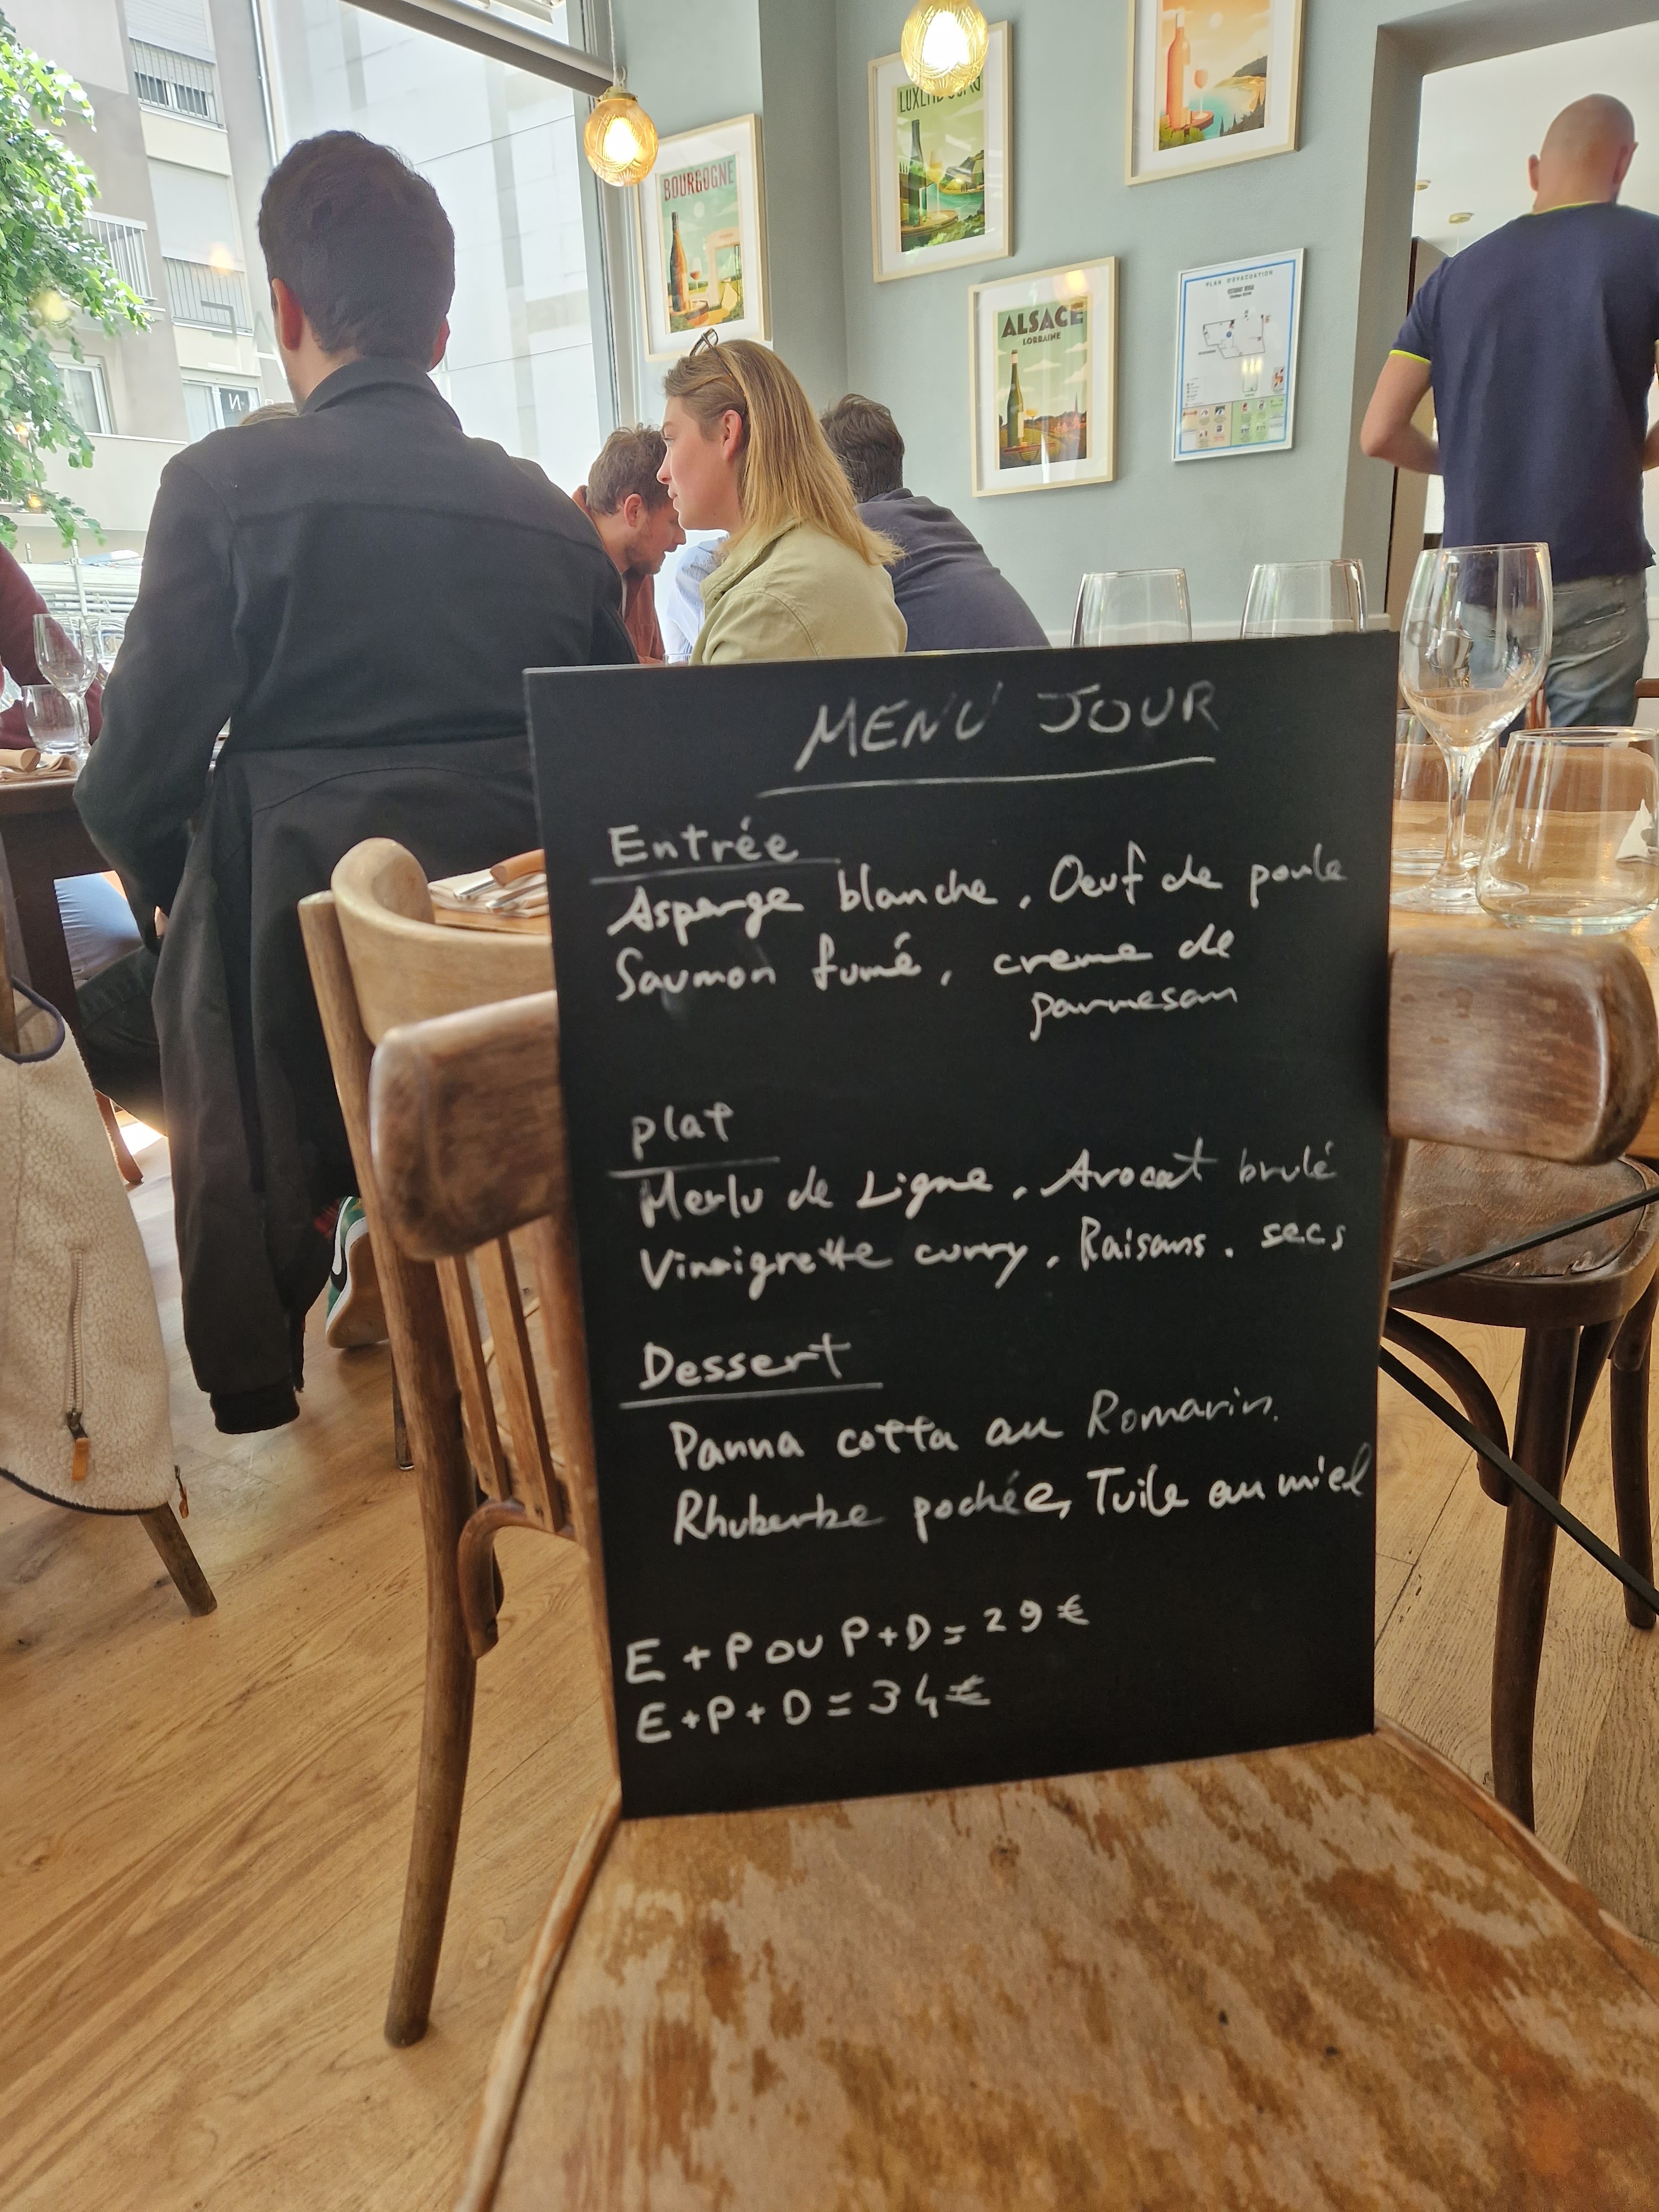 BOURGOGNE
ALSACE
LORRAINE
PLAN D'EVACUATION
MENU JOUR
Entrée
Asperge blanche, Oeuf de poule
Saumon fumé, creme de
parmesan
plat
Merlu de Ligne, Avocat brulé
Vinaigrette curry, Raisans. secs
Dessert
Panna cotta au Romarin.
Rhubarbe pochée, Tuile au miel
E + P ou P+D = 29 €
E+P+D = 34€